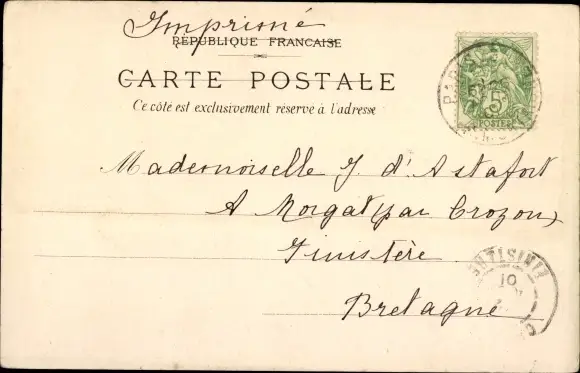 Imprimé
RÉPUBLIQUE FRANCAISE
CARTE POSTALE
Ce côté est exclusivement réservé à l'adresse
5c
POSTES
Mademoiselle J. d'Astafort
A Morgat (par Crozon)
Finistère
Bretagne
FINISTÈRE
10